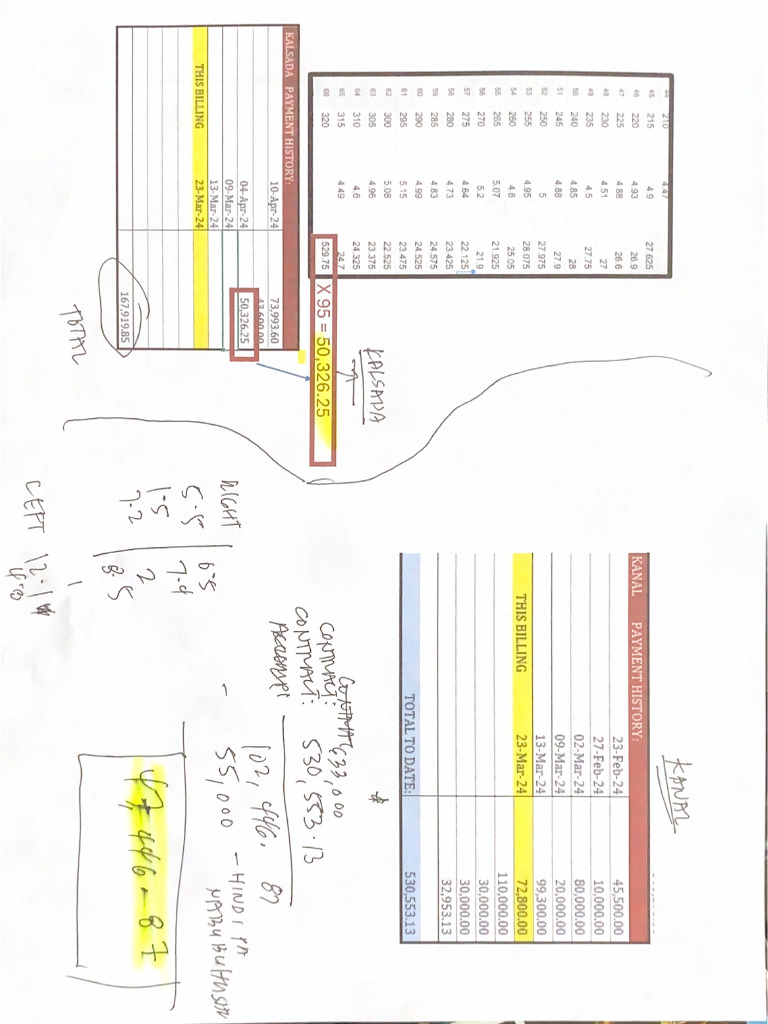 44 210 4.47
45 215 4.9 27.625
46 220 4.93 26.9
47 225 4.88 26.6
48 230 4.51 27
49 235 4.5 27.75
50 240 4.85 28
51 245 4.88 27.9
52 250 5 27.975
53 255 4.95 28.075
54 260 4.8 25.05
55 265 5.07 21.925
56 270 5.2 21.9
57 275 4.64 22.125
58 280 4.73 23.425
59 285 4.83 24.575
60 290 4.99 24.525
61 295 5.15 23.475
62 300 5.08 22.525
63 305 4.96 23.375
64 310 4.6 24.325
65 315 4.49 24.7
320 529.75 X 95 = 50,326.25
KALSADA
KALSADA PAYMENT HISTORY:
10-Apr-24 73,993.60
43,600.00
04-Apr-24 50,326.25
09-Mar-24
13-Mar-24
THIS BILLING 23-Mar-24
167,919.85
TOTAL
KANAL
KANAL PAYMENT HISTORY:
23-Feb-24 45,500.00
27-Feb-24 10,000.00
02-Mar-24 80,000.00
09-Mar-24 20,000.00
13-Mar-24 99,300.00
THIS BILLING 23-Mar-24 72,800.00
110,000.00
30,000.00
30,000.00
32,953.13
TOTAL TO DATE: 530,553.13
CONTRACT: 633,000
CONTRACT: 530,553.13
102,446.87
- 55,000 - HINDI PA
47,446.87
RIGHT
5.5 6.5
1.5 7.4
7.2 2
8.5
LEFT 12.1